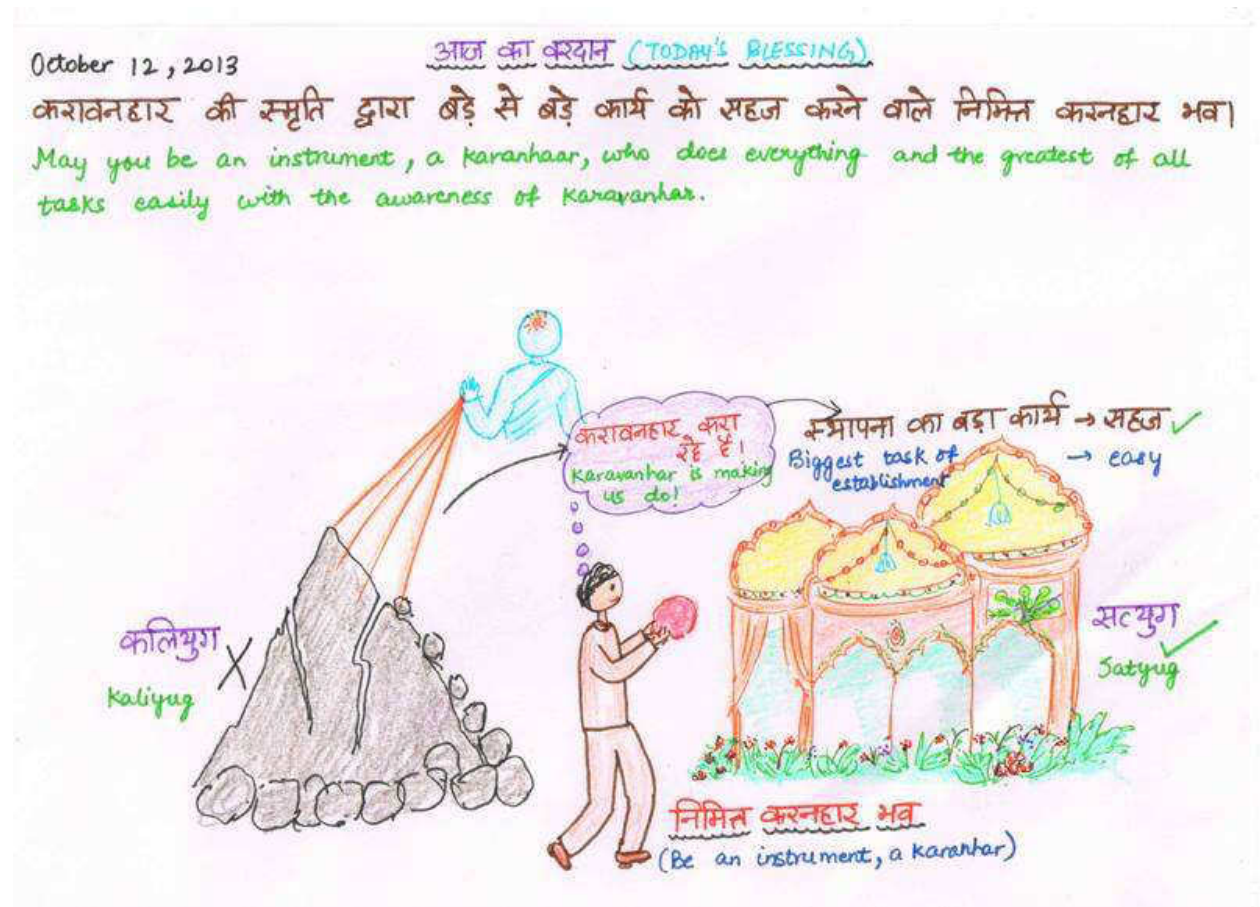 October 12, 2013
आज का वरदान (TODAY'S BLESSING)
करावनहार की स्मृति द्वारा बड़े से बड़े कार्य को सहज करने वाले निमित्त करनहार भव।
May you be an instrument, a karanhaar, who does everything and the greatest of all
tasks easily with the awareness of Karavanhar.
करावनहार करा
रहे हैं!
Karavanhar is making
us do!
स्थापना का बड़ा कार्य → सहज ✓
Biggest task of → easy
establishment
कलियुग X
Kaliyug
सतयुग ✓
Satyug
निमित्त करनहार भव
(Be an instrument, a karanhar)